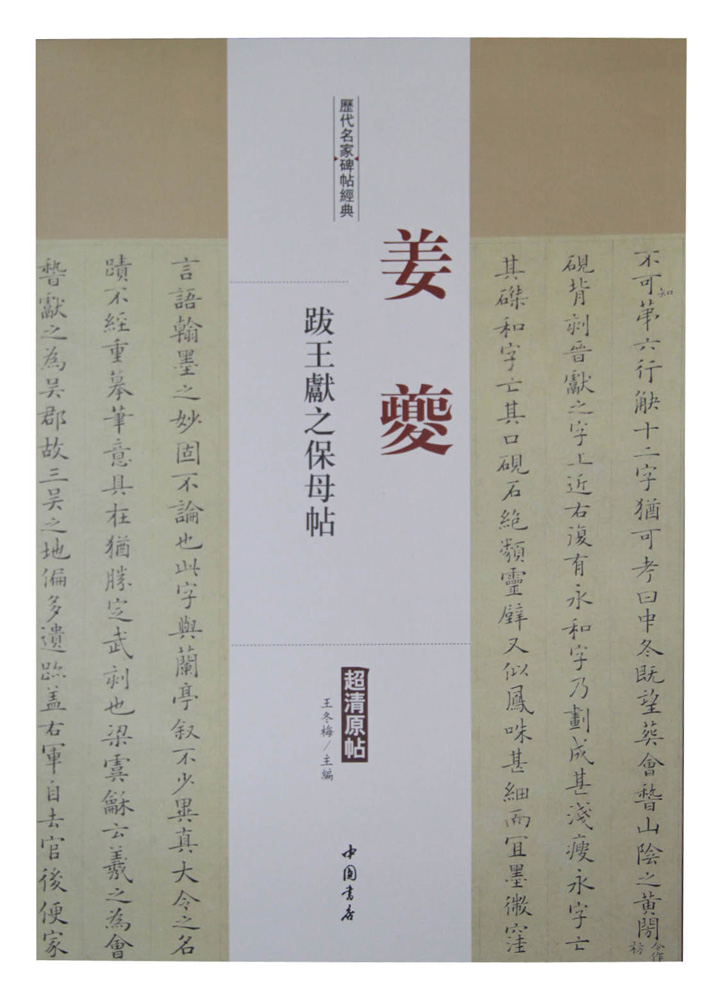 歷代名家碑帖經典
姜夔
跋王獻之保母帖
超清原帖
王冬梅/主編
中国书店
不可知第六行觖十二字猶可考曰中冬既望葬會稽山陰之黃閍
今作祊
硯背刻晉獻之字上近右復有永和字乃劃成甚淺瘦永字亡
其磔和字亡其口硯石絶類靈壁又似鳳咮甚細而宜墨微窪
言語翰墨之妙固不論也此字與蘭亭叙不少異真大令之名
蹟不經重摹筆意具在猶勝定武刻也梁虞龢云羲之為會
稽獻之為吳郡故三吳之地偏多遺跡蓋右軍自去官後便家